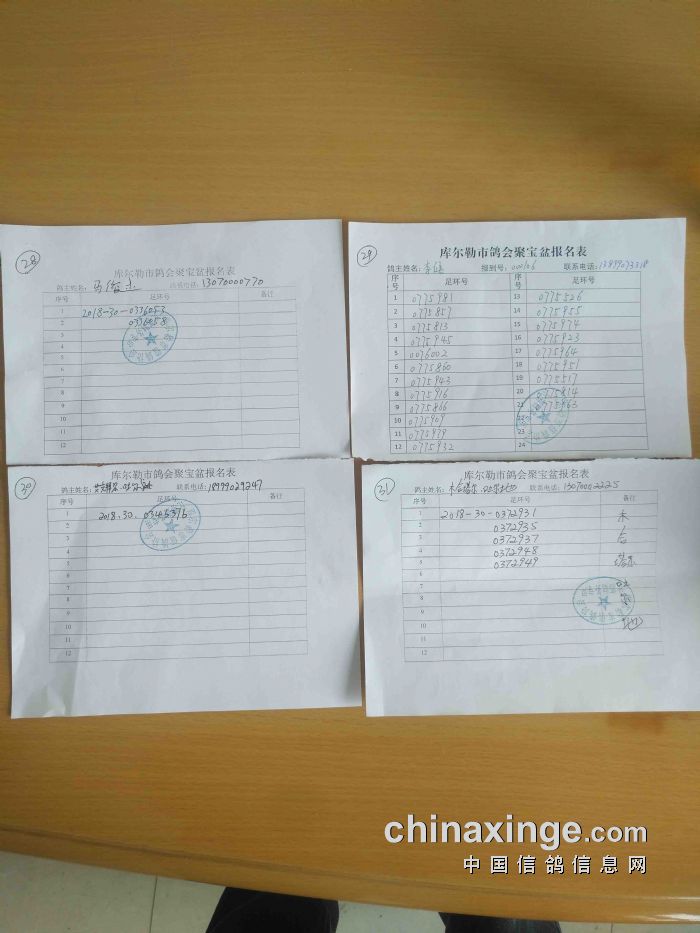 28
库尔勒市鸽会聚宝盆报名表
鸽主姓名: 马 联系电话: 13070000770
序号 足环号 备注
1 2018-30-0336053
2 0336058
3
4
5
6
7
8
9
10
11
12
29
库尔勒市鸽会聚宝盆报名表
鸽主姓名: 李 报到号: 000106 联系电话:
序号 足环号 序号 足环号
1 0775981 13 0775526
2 0775857 14 0775955
3 0775813 15 0775974
4 0775945 16 0775923
5 0076002 17 0775964
6 0775860 18 0775951
7 0775943 19 0775517
8 0775916 20 0775814
9 0775866 21 0775963
10 0775909 22
11 0775939 23
12 0775932 24
30
库尔勒市鸽会聚宝盆报名表
鸽主姓名: 联系电话: 18999029247
序号 足环号 备注
1 2018.30.0345376
2
3
4
5
6
7
8
9
10
11
12
31
库尔勒市鸽会聚宝盆报名表
鸽主姓名: 联系电话: 13070002225
序号 足环号 备注
1 2018-30-0372931
2 0372935
3 0372937 合
4 0372948
5 0372949
6
7
8
9
10 地
11
12
chinaxinge.com
中国信鸽信息网